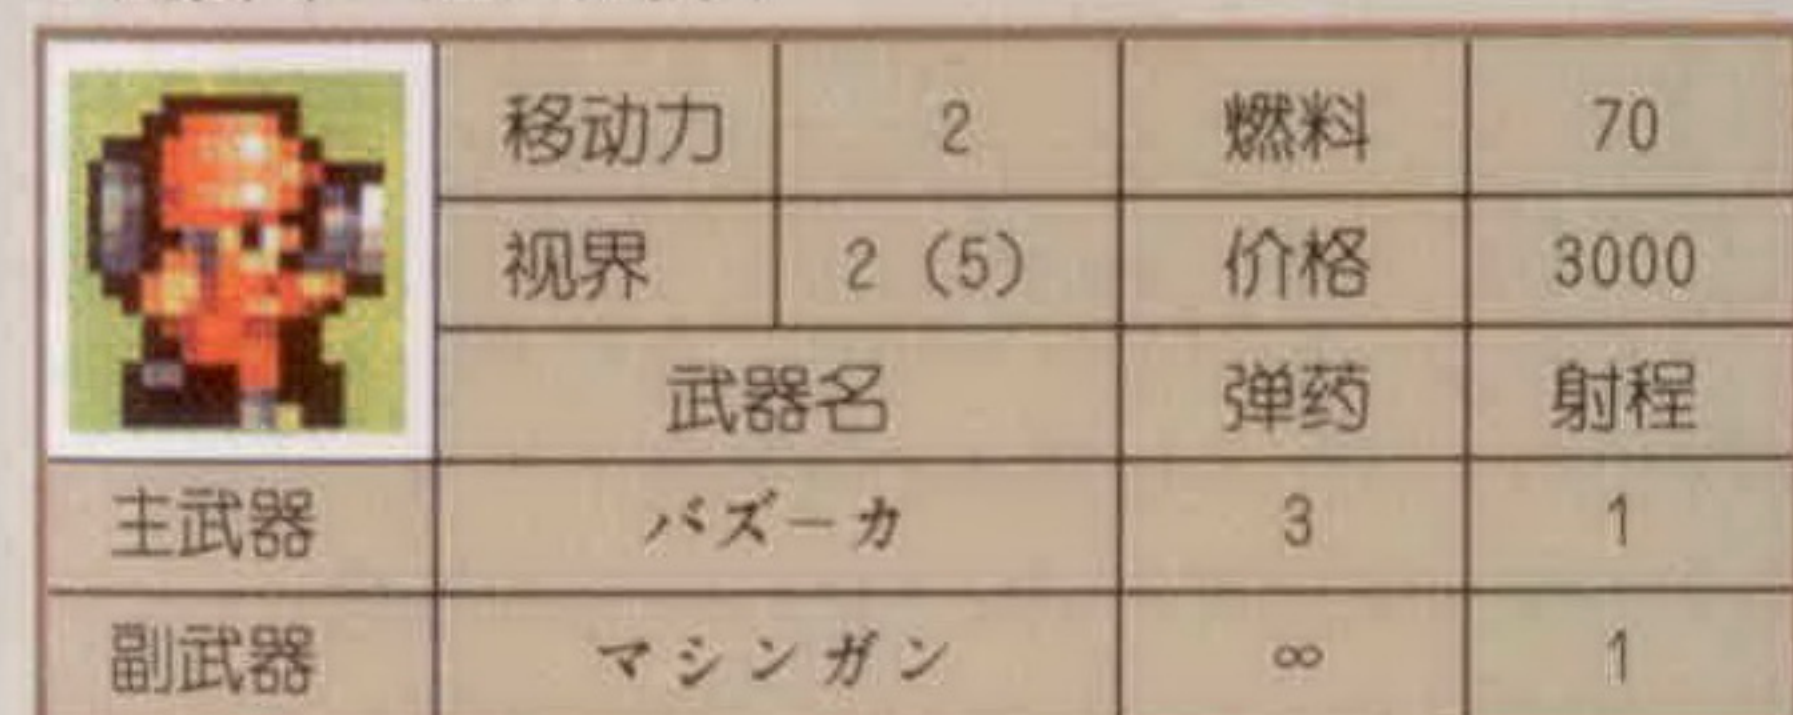 移动力 2 燃料 70
视界 2（5） 价格 3000
武器名 弹药 射程
主武器 バズーカ 3 1
副武器 マシンガン ∞ 1